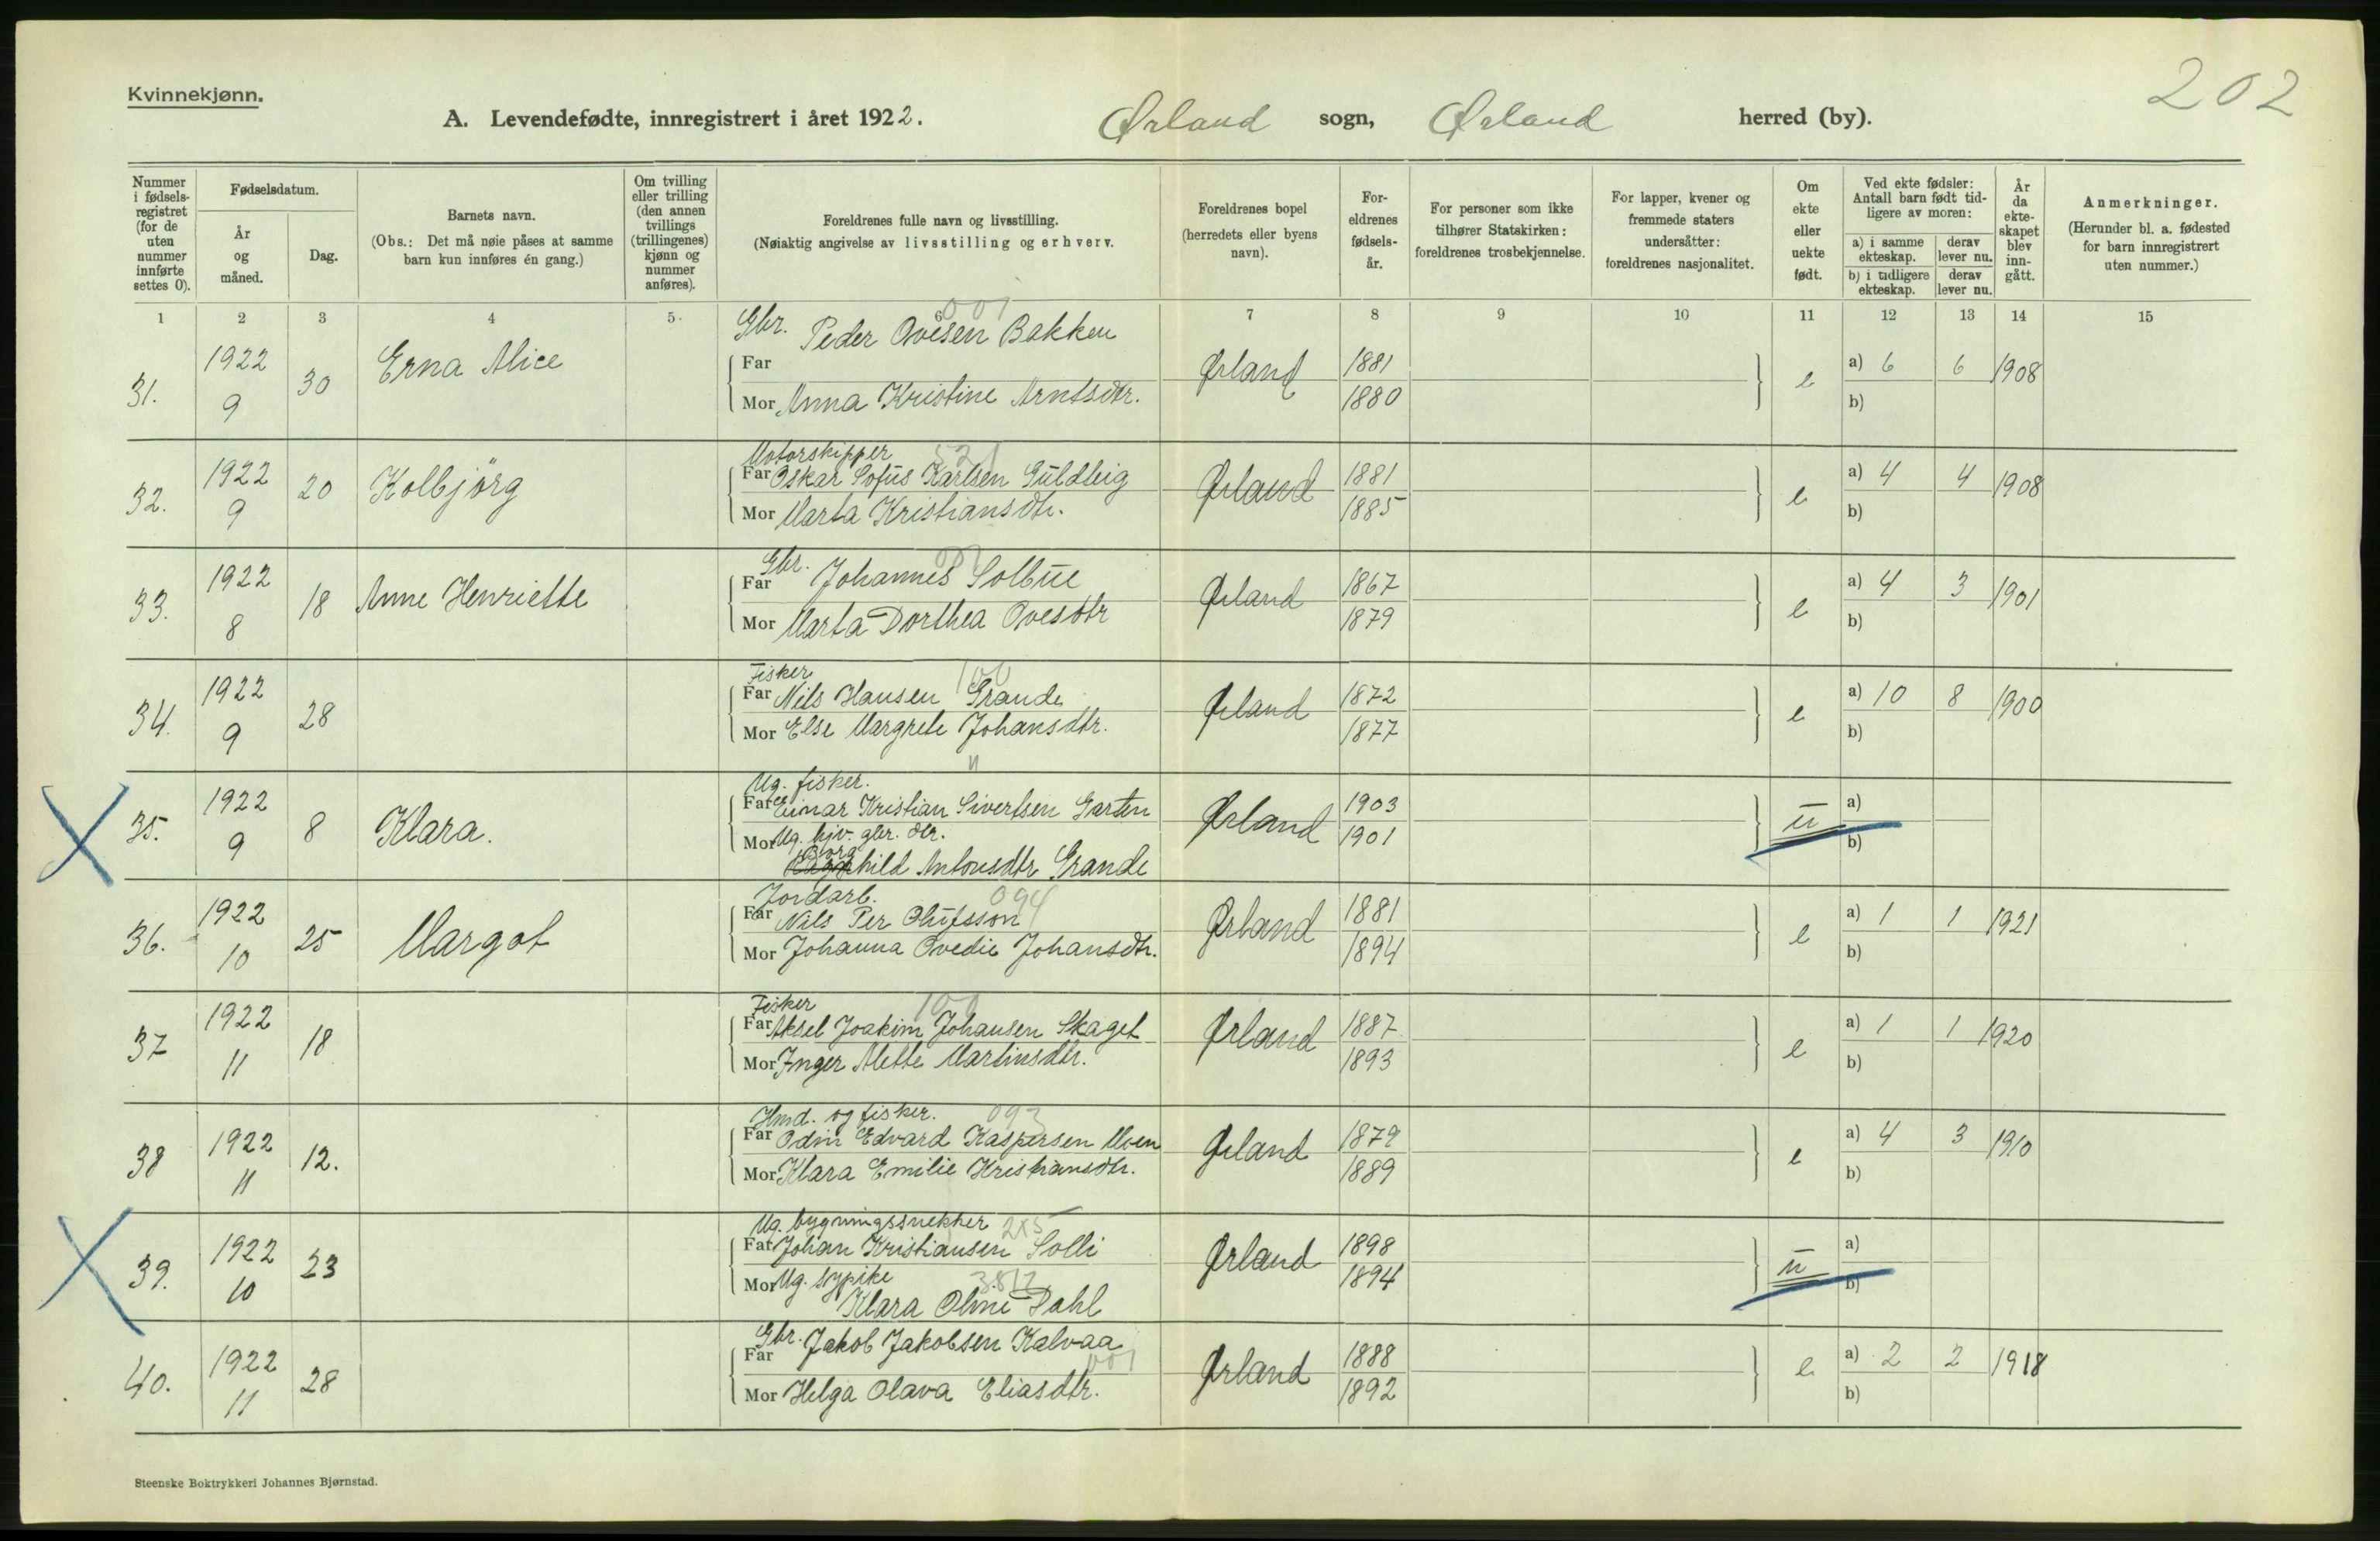 202
Kvinnekjønn.
A. Levendefødte, innregistrert i året 1922. Ørland sogn, Ørland herred (by).
Nummer i fødsels-registret (for de uten nummer innførte settes 0).
Fødselsdatum.
År og måned.
Dag.
Barnets navn.
(Obs.: Det må nøie påses at samme barn kun innføres én gang.)
Om tvilling eller trilling (den annen tvillings (trillingenes) kjønn og nummer anføres).
Foreldrenes fulle navn og livsstilling.
(Nøiaktig angivelse av livsstilling og erhverv.
Foreldrenes bopel (herredets eller byens navn).
For-eldrenes fødsels-år.
For personer som ikke tilhører Statskirken: foreldrenes trosbekjennelse.
For lapper, kvener og fremmede staters undersåtter: foreldrenes nasjonalitet.
Om ekte eller uekte født.
Ved ekte fødsler: Antall barn født tid-ligere av moren:
a) i samme ekteskap.
derav lever nu.
b) i tidligere ekteskap.
derav lever nu.
År da ekte-skapet blev inn-gått.
Anmerkninger.
(Herunder bl. a. fødested for barn innregistrert uten nummer.)
1 2 3 4 5. 6 7 8 9 10 11 12 13 14 15
001
Gbr. Peder Ovesen Bakken
31. 1922 9 30 Erna Alice Far Ørland 1881 e a) 6 6 1908
Mor Anna Kristine Arntsdtr. 1880 b)
Motorskipper 521
32. 1922 9 20 Kolbjörg Far Oskar Sofus Karlsen Guldteig Ørland 1881 e a) 4 4 1908
Mor Marta Kristiansdtr. 1885 b)
Gbr. 001
33. 1922 8 18 Anne Henriette Far Johannes Solbue Ørland 1867 e a) 4 3 1901
Mor Marta Dorthea Ovesdtr 1879 b)
Fisker 100
34. 1922 9 28 Far Nils Hansen Grande Ørland 1872 e a) 10 8 1900
Mor Else Margrete Johansdtr. 1877 b)
Ug. fisker. "
35. 1922 9 8 Klara. Far Einar Kristian Sivertsen Garten Ørland 1903 u a)
Mor Ug. hjv. gbr. dtr. 1901 b)
Borghild Antonsdtr Grande
Jordarb. 094
36. 1922 10 25 Margot Far Nils Per Olufsson Ørland 1881 e a) 1 1 1921
Mor Johanna Ovedie Johansdtr. 1894 b)
Fisker 100
37 1922 11 18 Far Aksel Joakim Johansen Skaget Ørland 1887 e a) 1 1 1920
Mor Inger Mette Martinsdtr. 1893 b)
Hmd. og fisker. 093
38 1922 11 12. Far Odin Edvard Kaspersen Moen Ørland 1879 e a) 4 3 1910
Mor Klara Emilie Kristiansdtr. 1889 b)
Ug. bygningssnekker 2x5
39. 1922 10 23 Far Johan Kristiansen Solli Ørland 1898 u a)
Mor Ug. sypike 1894 b)
Klara Oline Dahl
Gbr. Jakob Jakobsen Kalvaa
001
40. 1922 11 28 Far Ørland 1888 e a) 2 2 1918
Mor Helga Olava Eliasdtr. 1892 b)
Steenske Boktrykkeri Johannes Bjørnstad.